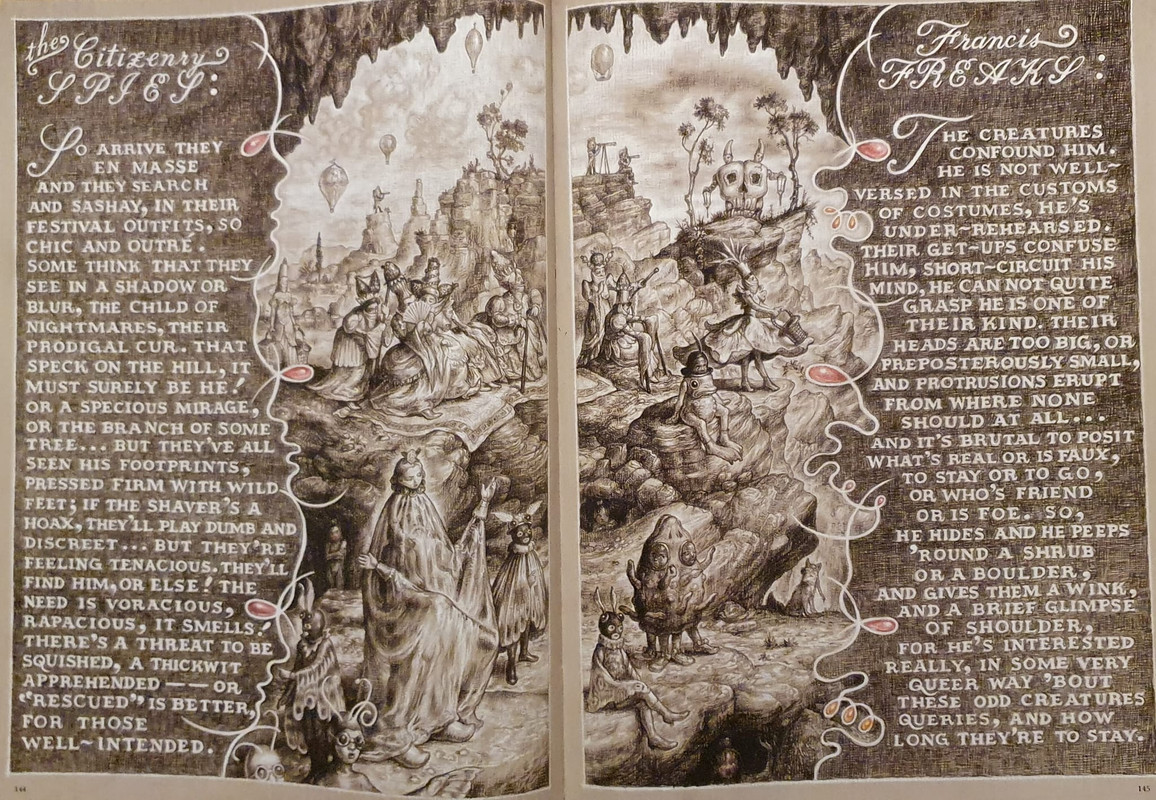 the Citizenry
SPIES:
SO ARRIVE THEY
EN MASSE
AND THEY SEARCH
AND SASHAY, IN THEIR
FESTIVAL OUTFITS, SO
CHIC AND OUTRÉ.
SOME THINK THAT THEY
SEE IN A SHADOW OR
BLUR, THE CHILD OF
NIGHTMARES, THEIR
PRODIGAL CUR. THAT
SPECK ON THE HILL, IT
MUST SURELY BE HE!
OR A SPECIOUS MIRAGE,
OR THE BRANCH OF SOME
TREE... BUT THEY'VE ALL
SEEN HIS FOOTPRINTS,
PRESSED FIRM WITH WILD
FEET; IF THE SHAVER'S A
HOAX, THEY'LL PLAY DUMB AND
DISCREET... BUT THEY'RE
FEELING TENACIOUS. THEY'LL
FIND HIM, OR ELSE! THE
NEED IS VORACIOUS,
RAPACIOUS, IT SMELLS!
THERE'S A THREAT TO BE
SQUISHED, A THICKWIT
APPREHENDED — — OR
"RESCUED" IS BETTER,
FOR THOSE
WELL~INTENDED.
144
Francis
FREAKS:
THE CREATURES
CONFOUND HIM.
HE IS NOT WELL~
VERSED IN THE CUSTOMS
OF COSTUMES, HE'S
UNDER~REHEARSED.
THEIR GET~UPS CONFUSE
HIM, SHORT~CIRCUIT HIS
MIND, HE CAN NOT QUITE
GRASP HE IS ONE OF
THEIR KIND. THEIR
HEADS ARE TOO BIG, OR
PREPOSTEROUSLY SMALL,
AND PROTRUSIONS ERUPT
FROM WHERE NONE
SHOULD AT ALL...
AND IT'S BRUTAL TO POSIT
WHAT'S REAL OR IS FAUX,
TO STAY OR TO GO,
OR WHO'S FRIEND
OR IS FOE. SO,
HE HIDES AND HE PEEPS
'ROUND A SHRUB
OR A BOULDER,
AND GIVES THEM A WINK,
AND A BRIEF GLIMPSE
OF SHOULDER,
FOR HE'S INTERESTED
REALLY, IN SOME VERY
QUEER WAY 'BOUT
THESE ODD CREATURES
QUERIES, AND HOW
LONG THEY'RE TO STAY.
145